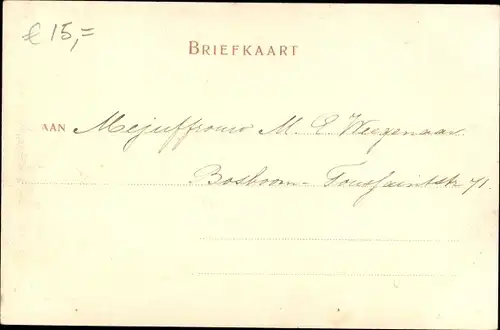 € 15,=
BRIEFKAART
AAN Mejuffrouw M. E. Wegenaar.
Bosboom-Toussaintstr 71.